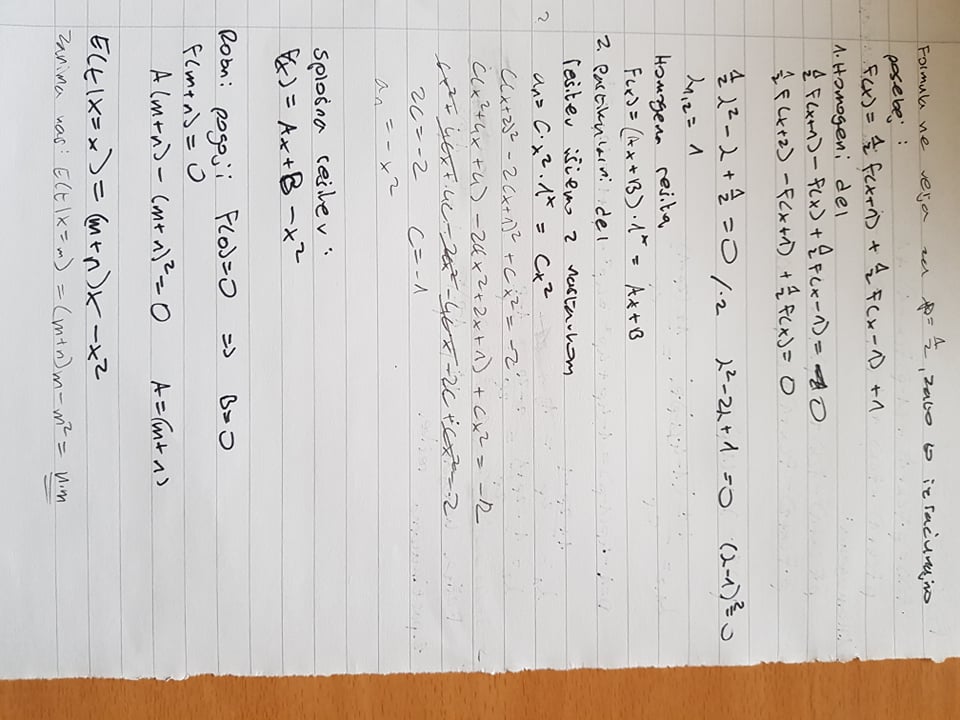 Formula ne velja za p = 1/2, zato to izračunajmo
posebej:
F(x) = 1/2 f(x+1) + 1/2 F(x-1) + 1
1. Homogeni del
1/2 F(x+1) - F(x) + 1/2 F(x-1) = 0
1/2 F(x+2) - F(x+1) + 1/2 F(x) = 0
1/2 λ² - λ + 1/2 = 0 /·2 λ² - 2λ + 1 = 0 (λ-1)² = 0
λ1,2 = 1
Homogena rešitev
F(x) = (Ax+B)·1^x = Ax+B
2. Partikularni del
rešitev iščemo z nastavkom
? an = C·x²·1^x = Cx²
C(x+2)² - 2C(x+1)² + Cx² = -2
C(x²+4x+4) - 2C(x²+2x+1) + Cx² = -2
Cx² + 4Cx + 4C - 2Cx² - 4Cx - 2C + Cx² = -2
2C = -2 C = -1
an = -x²
Splošna rešitev:
F(x) = Ax + B - x²
Robni pogoji F(0) = 0 => B = 0
F(m+n) = 0
A(m+n) - (m+n)² = 0 A = (m+n)
E(t|X=x) = (m+n)x - x²
Zanima nas: E(t|X=m) = (m+n)m - m² = n·m